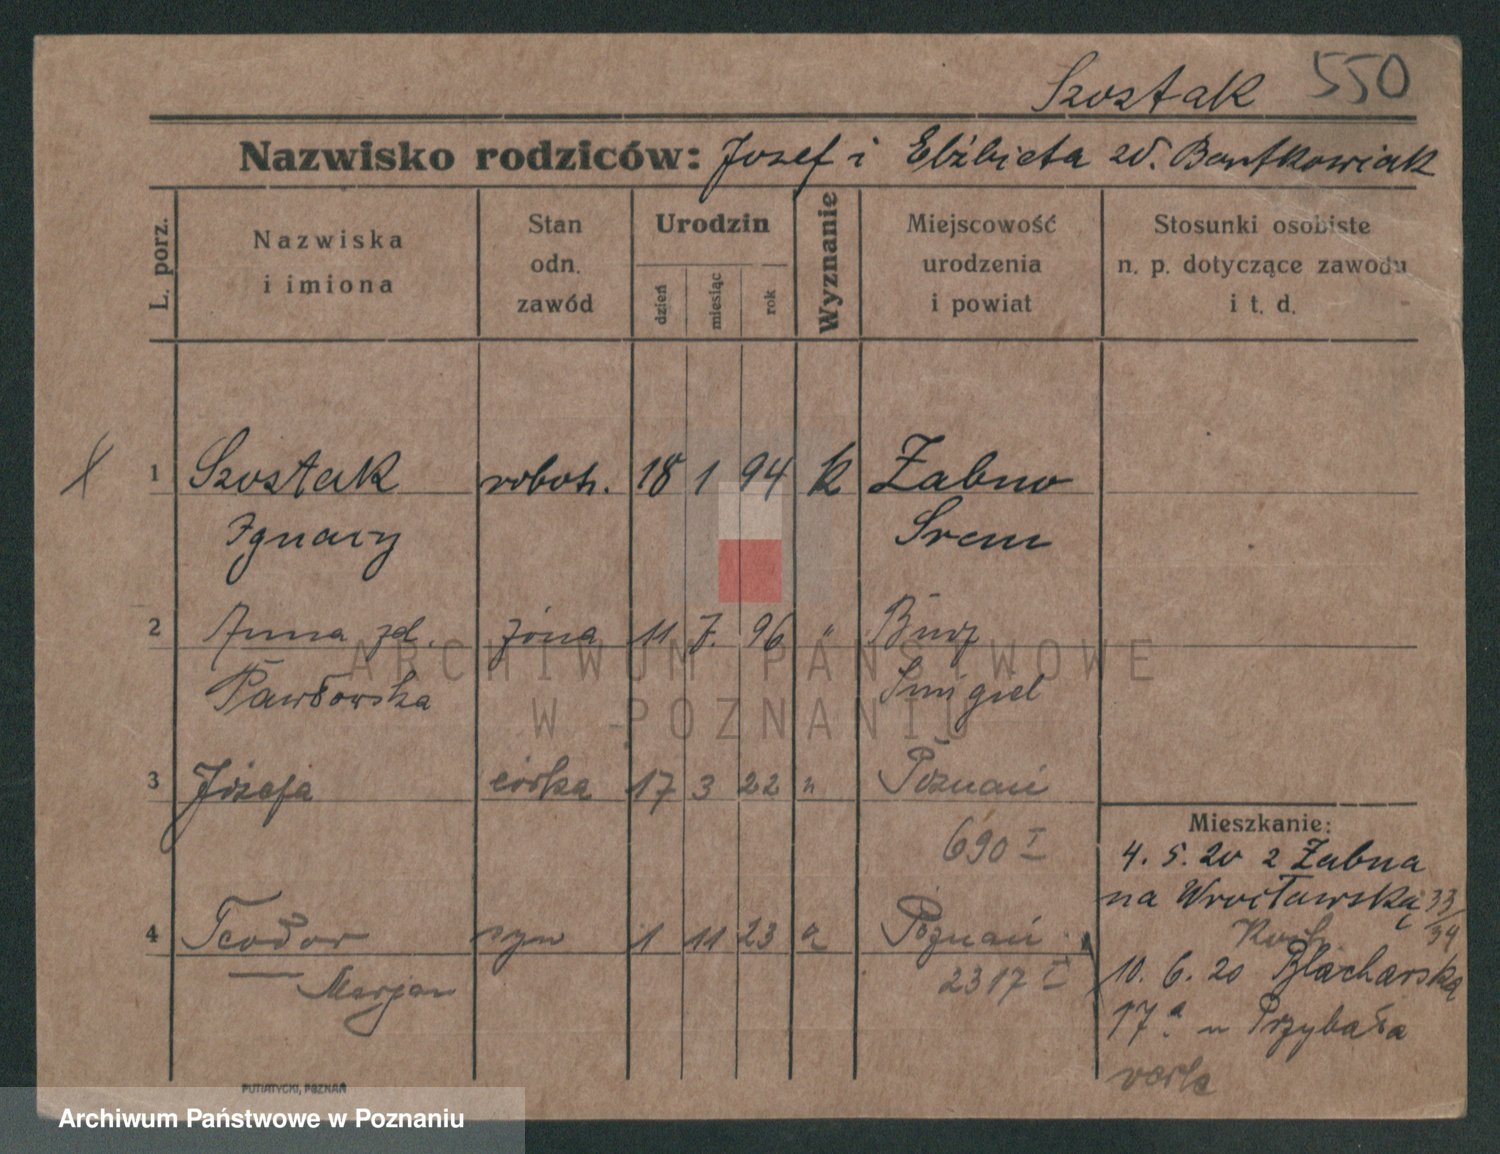 Szostak 550
Nazwisko rodziców: Josef i Elżbieta zd. Bartkowiak
L. porz.
Nazwiska i imiona
Stan odn. zawód
Urodzin
dzień miesiąc rok
Wyznanie
Miejscowość urodzenia i powiat
Stosunki osobiste n. p. dotyczące zawodu i t. d.
1 Szostak robotn. 18 1 94 k Żabno
Ignacy Śrem
2 Anna zd. żona 11 7. 96 " 
Pawłowska Śmigiel
3 Józefa córka 17 3 22 " Poznań
690 I
4 Teodor syn 1 11 23 Poznań
Marjan 2317 I
Mieszkanie:
4. 5. 20 z Żabna
na Wrocławską 33/34
10. 6. 20 Blacharska
17a u Przybyła
PUTIATYCKI, POZNAŃ
ARCHIWUM PAŃSTWOWE
W POZNANIU
Archiwum Państwowe w Poznaniu